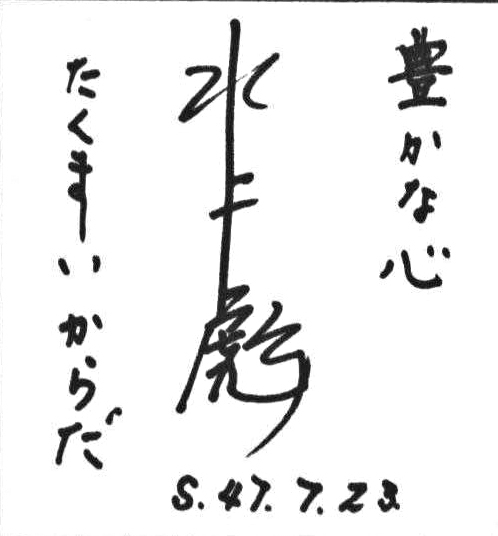 豊かな心
水上彪
たくましいからだ
S.47.7.23.